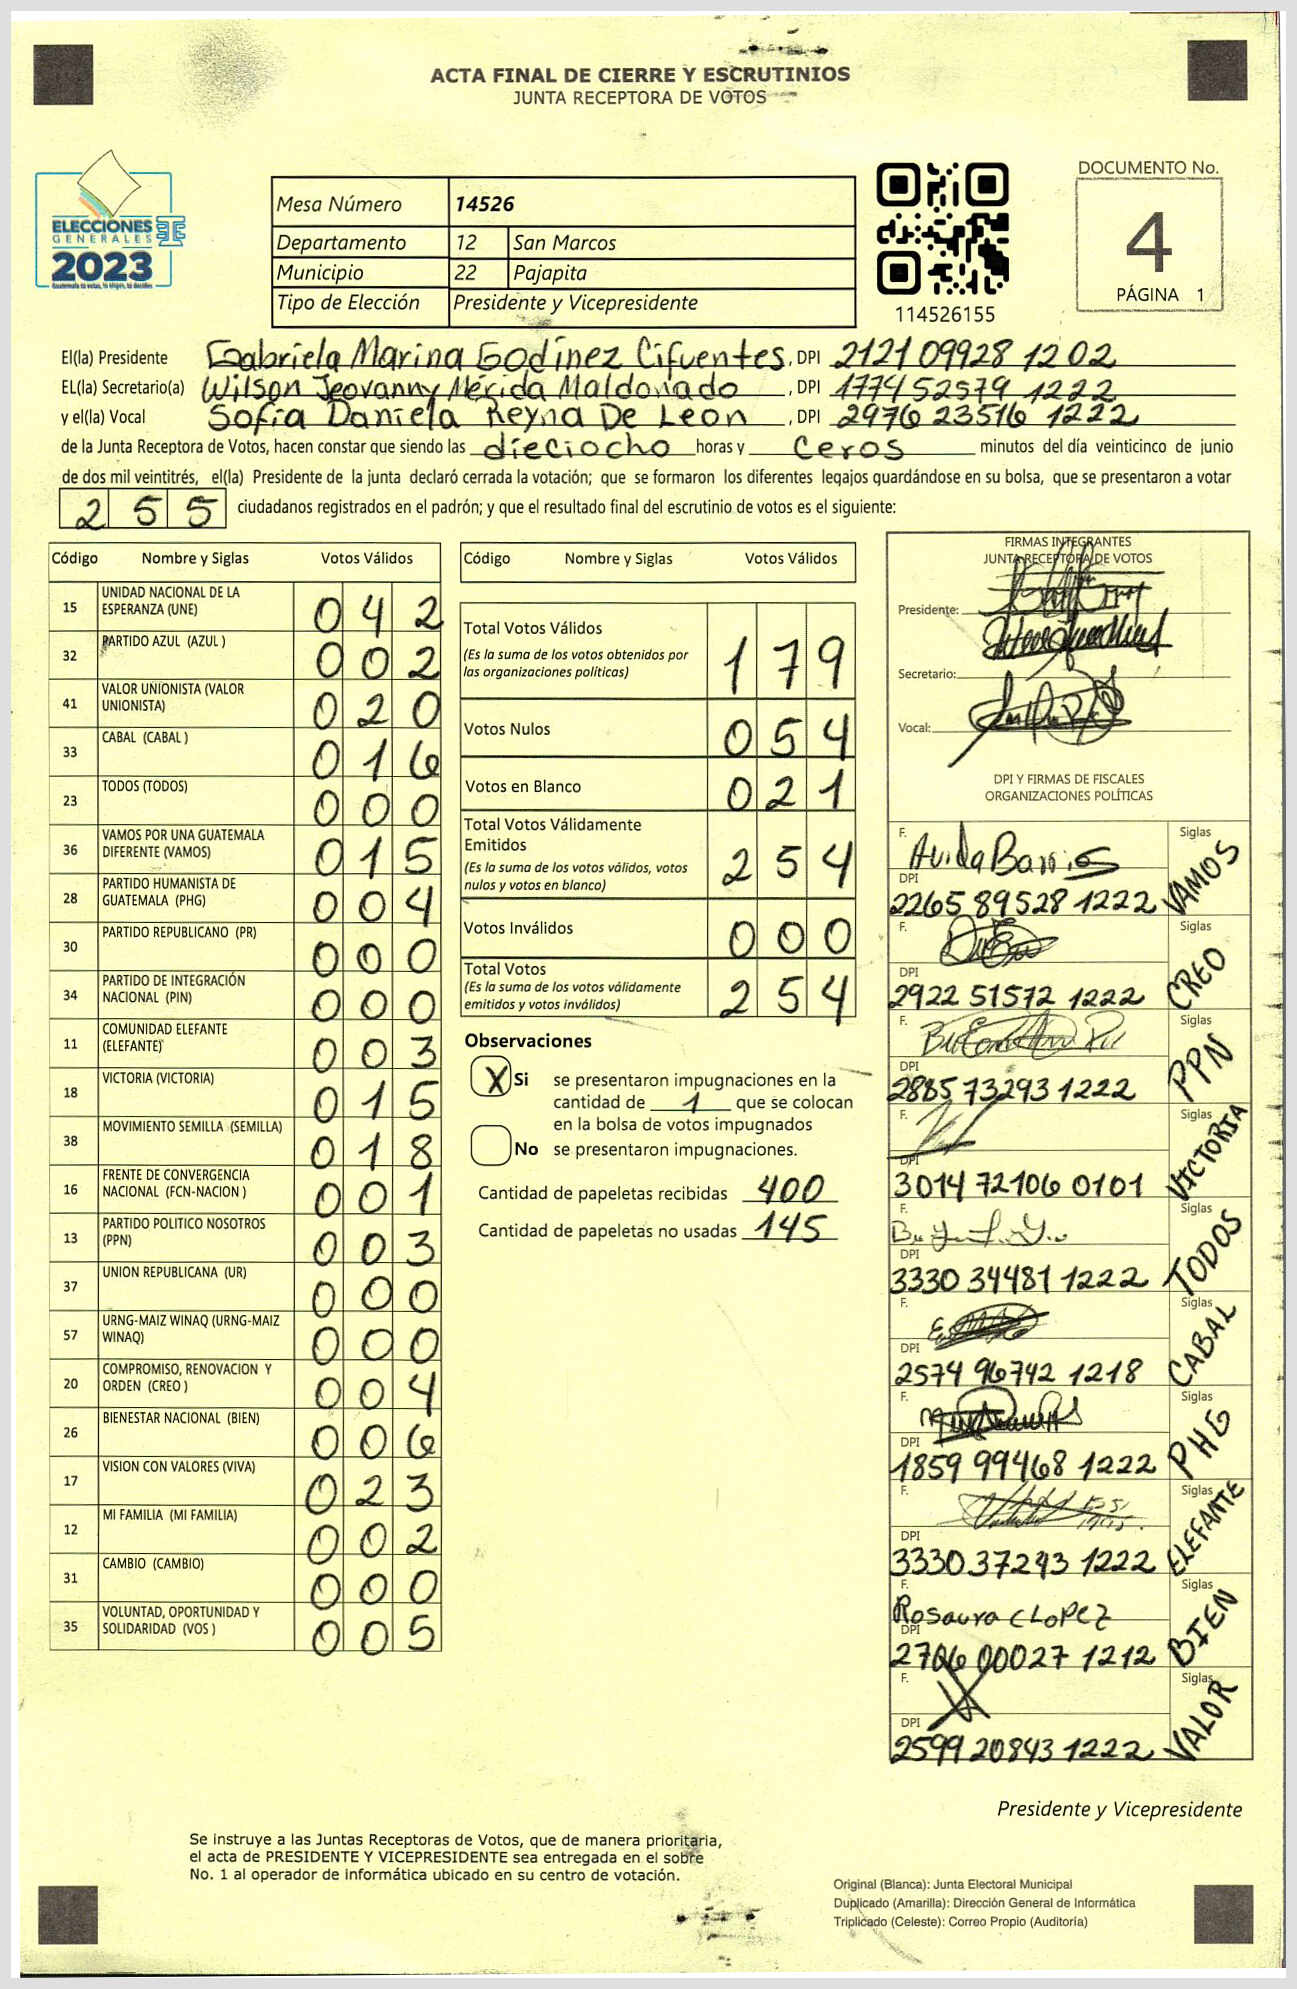 ACTA FINAL DE CIERRE Y ESCRUTINIOS
JUNTA RECEPTORA DE VOTOS
ELECCIONES
GENERALES
2023
Guatemala tú votas, tú eliges, tú decides
Mesa Número 14526
Departamento 12 San Marcos
Municipio 22 Pajapita
Tipo de Elección Presidente y Vicepresidente
114526155
DOCUMENTO No.
4
PÁGINA 1
El(la) Presidente Gabriela Marina Godínez Cifuentes, DPI 2121 09928 1202
EL(la) Secretario(a) Wilson Jeovanny Mérida Maldonado, DPI 1774 52579 1222
y el(la) Vocal Sofía Daniela Reyna De Leon, DPI 2976 23516 1222
de la Junta Receptora de Votos, hacen constar que siendo las dieciocho horas y ceros minutos del día veinticinco de junio
de dos mil veintitrés, el(la) Presidente de la junta declaró cerrada la votación; que se formaron los diferentes legajos guardándose en su bolsa, que se presentaron a votar
255 ciudadanos registrados en el padrón; y que el resultado final del escrutinio de votos es el siguiente:
Código Nombre y Siglas Votos Válidos
15 UNIDAD NACIONAL DE LA ESPERANZA (UNE) 042
32 PARTIDO AZUL (AZUL ) 002
41 VALOR UNIONISTA (VALOR UNIONISTA) 020
33 CABAL (CABAL ) 016
23 TODOS (TODOS) 000
36 VAMOS POR UNA GUATEMALA DIFERENTE (VAMOS) 015
28 PARTIDO HUMANISTA DE GUATEMALA (PHG) 004
30 PARTIDO REPUBLICANO (PR) 000
34 PARTIDO DE INTEGRACIÓN NACIONAL (PIN) 000
11 COMUNIDAD ELEFANTE (ELEFANTE) 003
18 VICTORIA (VICTORIA) 015
38 MOVIMIENTO SEMILLA (SEMILLA) 018
16 FRENTE DE CONVERGENCIA NACIONAL (FCN-NACION ) 001
13 PARTIDO POLITICO NOSOTROS (PPN) 003
37 UNION REPUBLICANA (UR) 000
57 URNG-MAIZ WINAQ (URNG-MAIZ WINAQ) 000
20 COMPROMISO, RENOVACION Y ORDEN (CREO ) 004
26 BIENESTAR NACIONAL (BIEN) 006
17 VISION CON VALORES (VIVA) 023
12 MI FAMILIA (MI FAMILIA) 002
31 CAMBIO (CAMBIO) 000
35 VOLUNTAD, OPORTUNIDAD Y SOLIDARIDAD (VOS ) 005
Código Nombre y Siglas Votos Válidos
Total Votos Válidos 179
(Es la suma de los votos obtenidos por
las organizaciones políticas)
Votos Nulos 054
Votos en Blanco 021
Total Votos Válidamente
Emitidos 254
(Es la suma de los votos válidos, votos
nulos y votos en blanco)
Votos Inválidos 000
Total Votos 254
(Es la suma de los votos válidamente
emitidos y votos inválidos)
Observaciones
X Si se presentaron impugnaciones en la
cantidad de 1 que se colocan
en la bolsa de votos impugnados
No se presentaron impugnaciones.
Cantidad de papeletas recibidas 400
Cantidad de papeletas no usadas 145
FIRMAS INTEGRANTES
JUNTA RECEPTORA DE VOTOS
Presidente:
Secretario:
Vocal:
DPI Y FIRMAS DE FISCALES
ORGANIZACIONES POLÍTICAS
F. Siglas
DPI 2265 89528 1222 VAMOS
F. Siglas
DPI 2922 51572 1222 CREO
F. Siglas
DPI 2885 73293 1222 PPN
F. Siglas
DPI 3014 72106 0101 VICTORIA
F. Siglas
DPI 3330 34481 1222 TODOS
F. Siglas
DPI 2574 96742 1218 CABAL
F. Siglas
DPI 1859 99468 1222 PHG
F. Siglas
DPI 3330 37243 1222 ELEFANTE
F. Rosaura C LoPeZ Siglas
DPI 2706 00027 1212 BIEN
F. Siglas
DPI 2599 20843 1222 VALOR
Presidente y Vicepresidente
Se instruye a las Juntas Receptoras de Votos, que de manera prioritaria,
el acta de PRESIDENTE Y VICEPRESIDENTE sea entregada en el sobre
No. 1 al operador de informática ubicado en su centro de votación.
Original (Blanca): Junta Electoral Municipal
Duplicado (Amarilla): Dirección General de Informática
Triplicado (Celeste): Correo Propio (Auditoría)